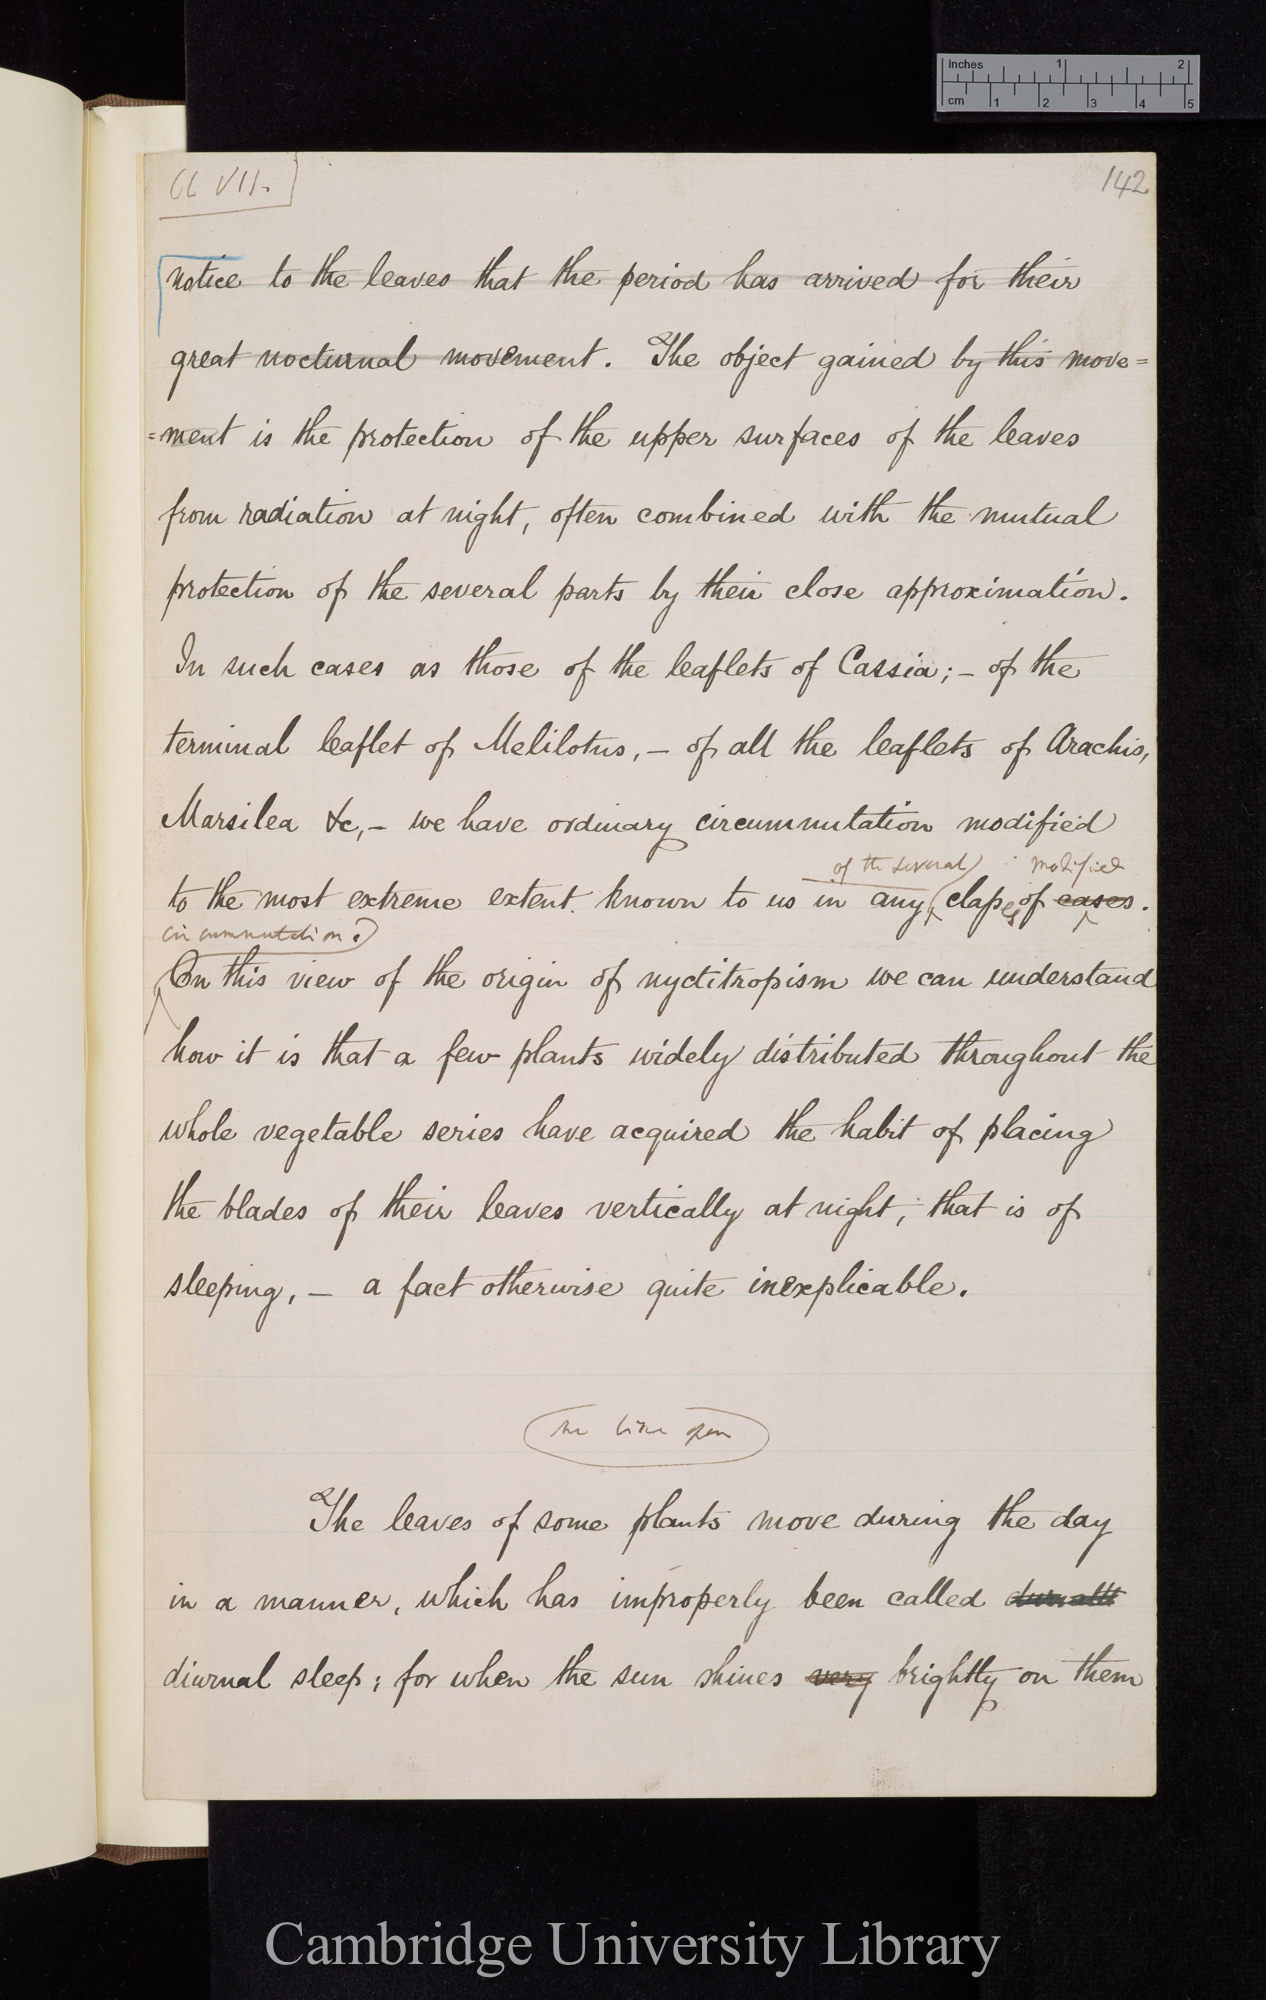 Inches 1 2
cm 1 2 3 4 5
Ch VII.
142
notice to the leaves that the period has arrived for their
great nocturnal movement. The object gained by this move=
=ment is the protection of the upper surfaces of the leaves
from radiation at night, often combined with the mutual
protection of the several parts by their close approximation.
In such cases as those of the leaflets of Cassia; – of the
terminal leaflet of Melilotus, – of all the leaflets of Arachis,
Marsilea &c, – we have ordinary circumnutation modified
of the several modified
to the most extreme extent known to us in any of cases.
circumnutation.
On this view of the origin of nyctitropism we can understand
how it is that a few plants widely distributed throughout the
whole vegetable series have acquired the habit of placing
the blades of their leaves vertically at night, that is of
sleeping, – a fact otherwise quite inexplicable.
line open
The leaves of some plants move during the day
in a manner, which has improperly been called
diurnal sleep; for when the sun shines very brightly on them
Cambridge University Library